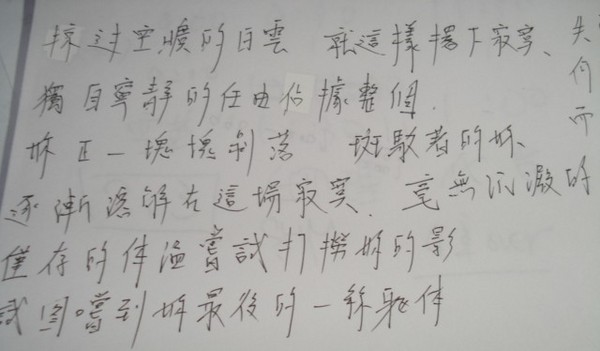 掠过空曠的白雲 就這樣擱下寂寞、
獨自寧靜的任由佔據整個.
妳正一塊塊剝落 斑駁着的妳、
逐漸溶解在這場寂寞、毫無沉澱的
僅存的体溫嘗試打撈妳的影
試图嚐到妳最後的一絲軀体
失
何
而